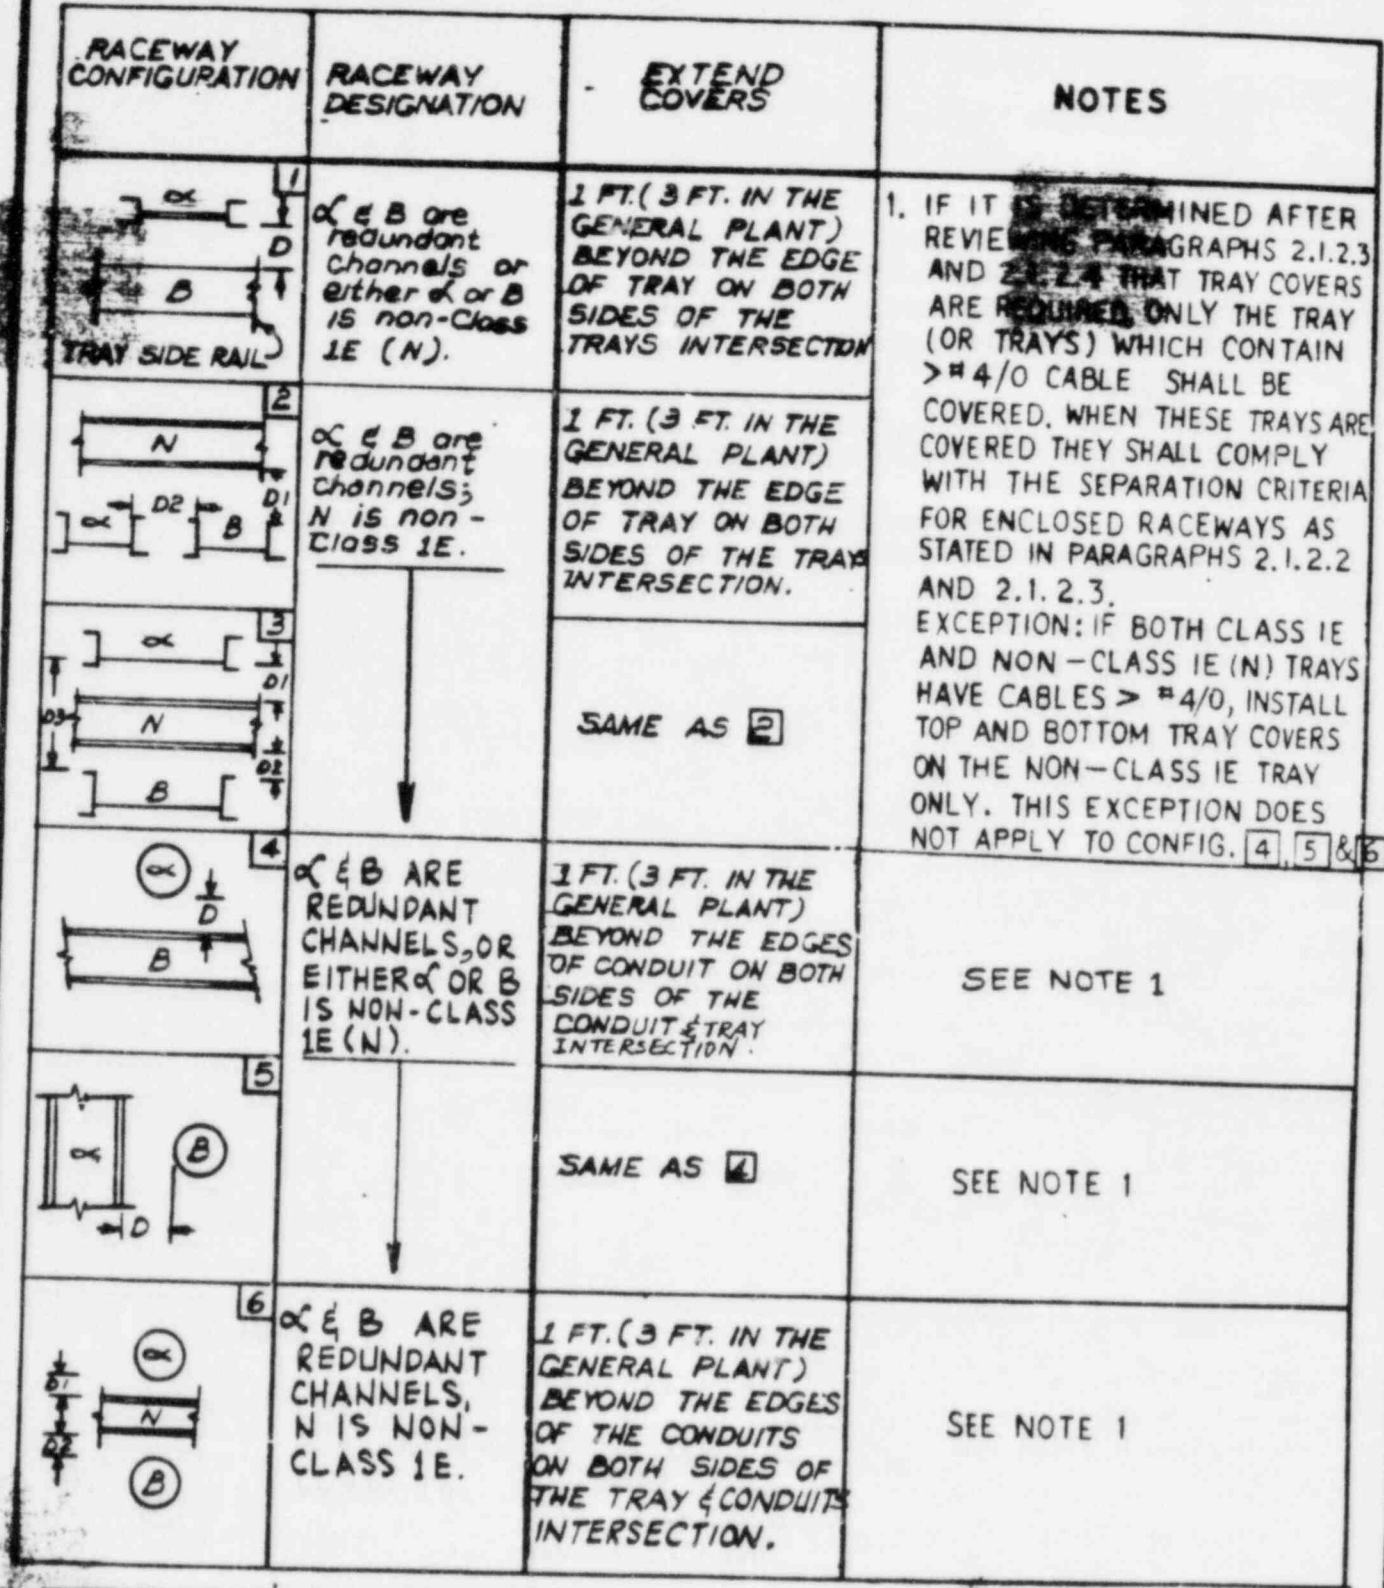 RACEWAY
CONFIGURATION
RACEWAY
DESIGNATION
EXTEND
COVERS
NOTES
1
α
D
B
TRAY SIDE RAIL
α & B are
redundant
channels or
either α or B
is non-Class
1E (N).
1 FT. (3 FT. IN THE
GENERAL PLANT)
BEYOND THE EDGE
OF TRAY ON BOTH
SIDES OF THE
TRAYS INTERSECTION
1. IF IT IS DETERMINED AFTER
REVIEWING PARAGRAPHS 2.1.2.3
AND 2.1.2.4 THAT TRAY COVERS
ARE REQUIRED, ONLY THE TRAY
(OR TRAYS) WHICH CONTAIN
>#4/0 CABLE SHALL BE
COVERED. WHEN THESE TRAYS ARE
COVERED THEY SHALL COMPLY
WITH THE SEPARATION CRITERIA
FOR ENCLOSED RACEWAYS AS
STATED IN PARAGRAPHS 2.1.2.2
AND 2.1.2.3.
EXCEPTION: IF BOTH CLASS IE
AND NON-CLASS IE (N) TRAYS
HAVE CABLES > #4/0, INSTALL
TOP AND BOTTOM TRAY COVERS
ON THE NON-CLASS IE TRAY
ONLY. THIS EXCEPTION DOES
NOT APPLY TO CONFIG. 4, 5 & 6
2
N
D1
α D2 B
α & B are
redundant
channels;
N is non-
Class 1E.
1 FT. (3 FT. IN THE
GENERAL PLANT)
BEYOND THE EDGE
OF TRAY ON BOTH
SIDES OF THE TRAYS
INTERSECTION.
3
α
D1
D3
N
D2
B
SAME AS 2
4
α
D
B
α & B ARE
REDUNDANT
CHANNELS, OR
EITHER α OR B
IS NON-CLASS
1E (N).
1 FT. (3 FT. IN THE
GENERAL PLANT)
BEYOND THE EDGES
OF CONDUIT ON BOTH
SIDES OF THE
CONDUIT & TRAY
INTERSECTION.
SEE NOTE 1
5
α
B
D
SAME AS 4
SEE NOTE 1
6
α
D1
N
D2
B
α & B ARE
REDUNDANT
CHANNELS,
N IS NON-
CLASS 1E.
1 FT. (3 FT. IN THE
GENERAL PLANT)
BEYOND THE EDGES
OF THE CONDUITS
ON BOTH SIDES OF
THE TRAY & CONDUITS
INTERSECTION.
SEE NOTE 1